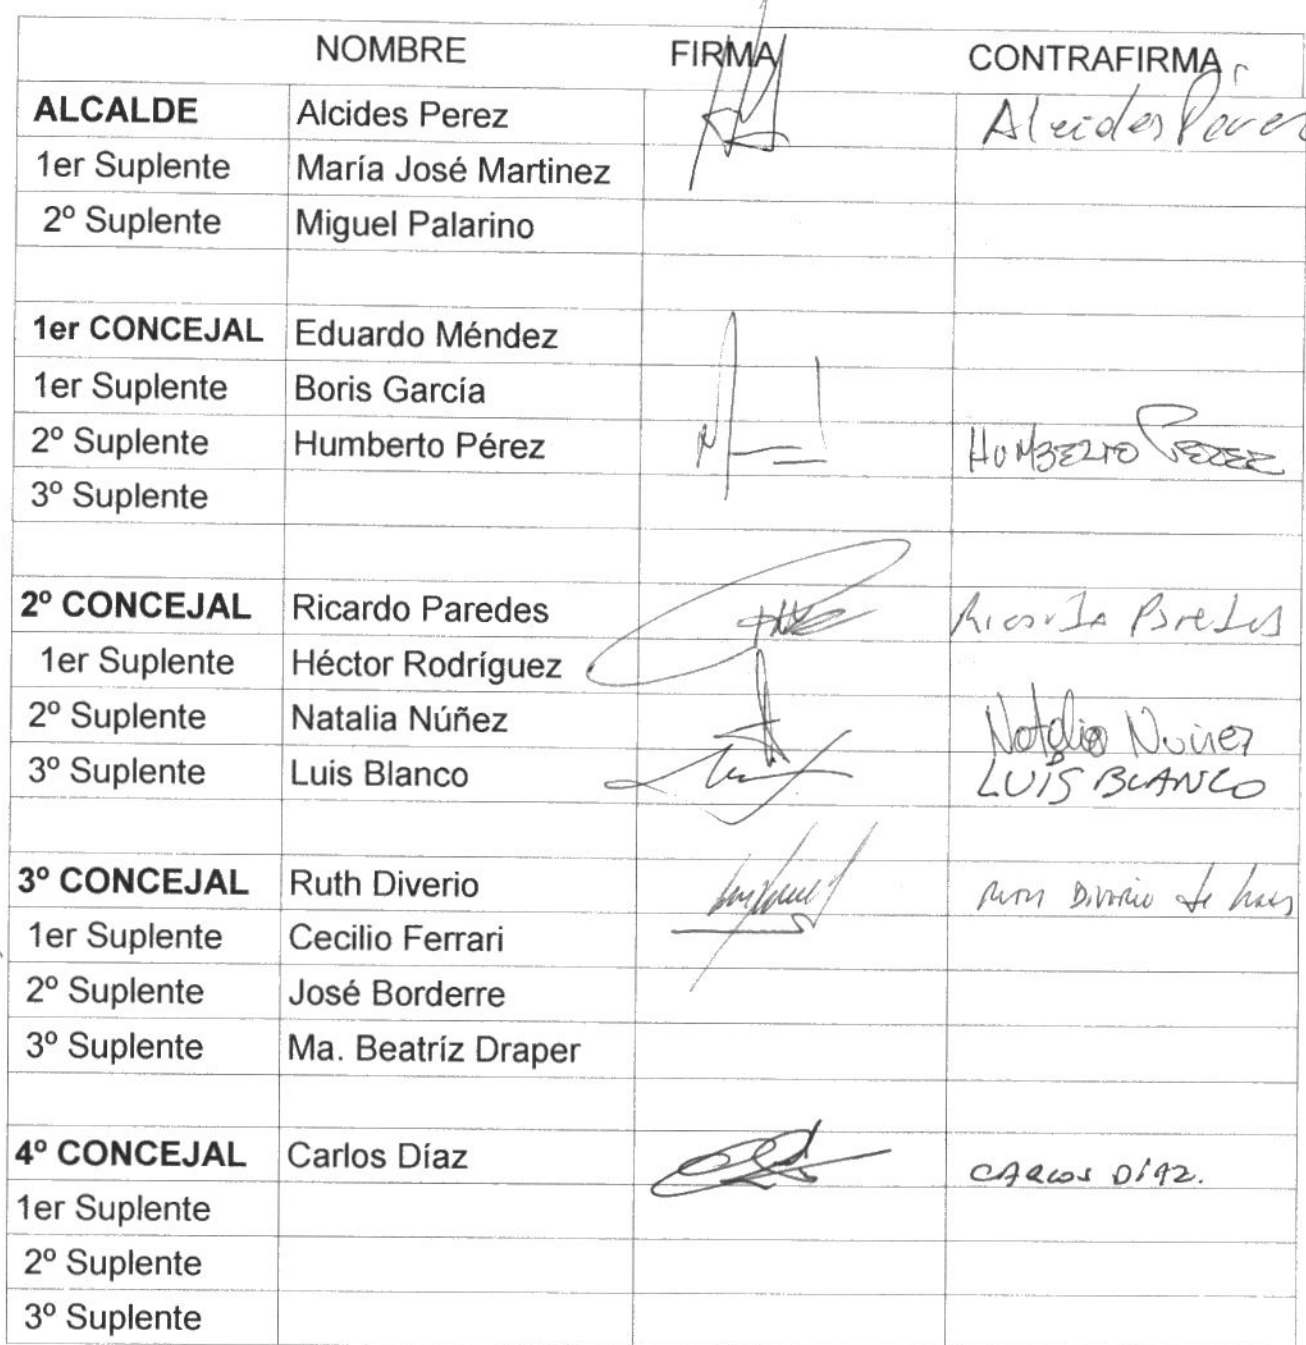 NOMBRE FIRMA CONTRAFIRMA
ALCALDE Alcides Perez Alcides Pérez
1er Suplente María José Martinez
2º Suplente Miguel Palarino
1er CONCEJAL Eduardo Méndez
1er Suplente Boris García
2º Suplente Humberto Pérez HUMBERTO PEREZ
3º Suplente
2º CONCEJAL Ricardo Paredes Ricardo Paredes
1er Suplente Héctor Rodríguez
2º Suplente Natalia Núñez Natalia Nuñez
3º Suplente Luis Blanco LUIS BLANCO
3º CONCEJAL Ruth Diverio Ruth Diverio de
1er Suplente Cecilio Ferrari
2º Suplente José Borderre
3º Suplente Ma. Beatríz Draper
4º CONCEJAL Carlos Díaz CARLOS DÍAZ.
1er Suplente
2º Suplente
3º Suplente